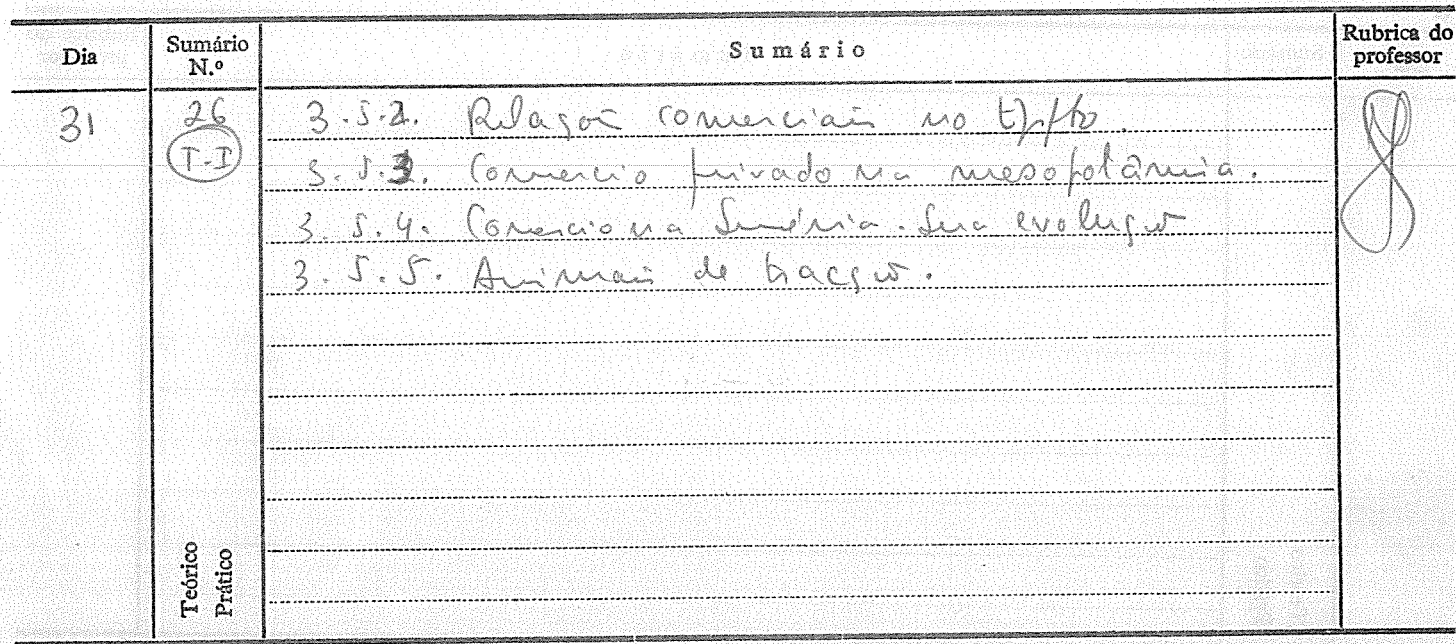 Dia Sumário N.º Sumário Rubrica do professor
31 26 3.5.2. Relações comerciais no Egipto.
T-I 3.5.3. Comercio privado na mesopotâmia.
3.5.4. Comercio na Suméria. Sua evolução
3.5.5. Animais de tracção.
Teórico
Prático